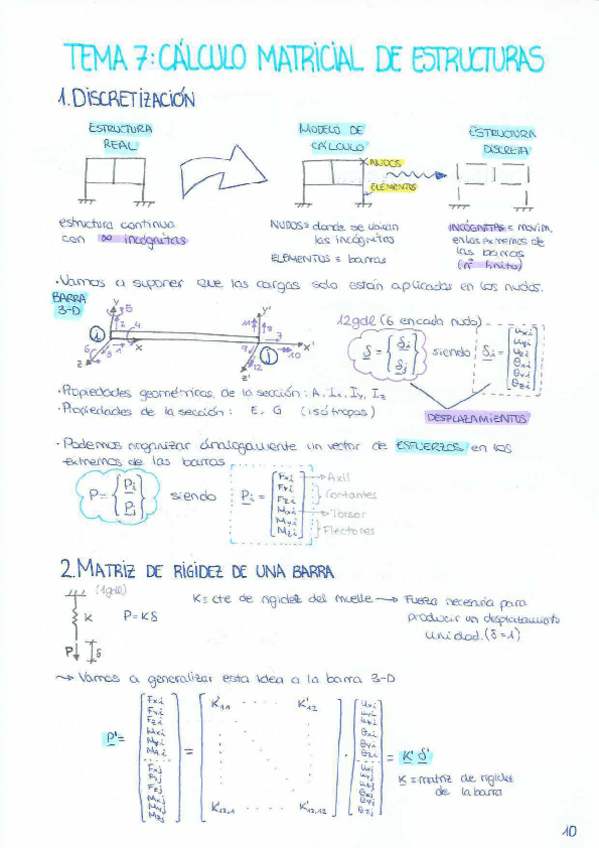 TEMA 7: CÁLCULO MATRICIAL DE ESTRUCTURAS
1. DISCRETIZACIÓN
ESTRUCTURA REAL
MODELO DE CÁLCULO
ESTRUCTURA DISCRETA
NUDOS
ELEMENTOS
estructura continua
con ∞ incógnitas
NUDOS = donde se ubican
las incógnitas
ELEMENTOS = barras
INCÓGNITAS = movim.
en los extremos de
las barras
(nº finito)
· Vamos a suponer que las cargas solo están aplicadas en los nudos.
BARRA
3-D
12 gdl (6 en cada nudo)
δ = {δi δj} siendo δi = [uxi uyi uzi θxi θyi θzi]
DESPLAZAMIENTOS
· Propiedades geométricas de la sección: A, Ix, Iy, Iz
· Propiedades de la sección: E, G (isótropas)
· Podemos organizar análogamente un vector de ESFUERZOS en los
extremos de las barras
P = {Pi Pj} siendo Pi = [Fxi Fyi Fzi Mxi Myi Mzi]
Axil
Cortantes
Torsor
Flectores
2. MATRIZ DE RIGIDEZ DE UNA BARRA
(1gdl)
K
P = Kδ
P
δ
K = cte de rigidez del muelle → Fuerza necesaria para
producir un desplazamiento
unidad. (δ=1)
Vamos a generalizar esta idea a la barra 3-D
P' =
Fxi
Fyi
Fzi
Mxi
Myi
Mzi
K'11 K'12
K12,1 K'12,12
uxi
uyi
uzi
θxi
θyi
θzi
= K' δ'
K = matriz de rigidez
de la barra
10